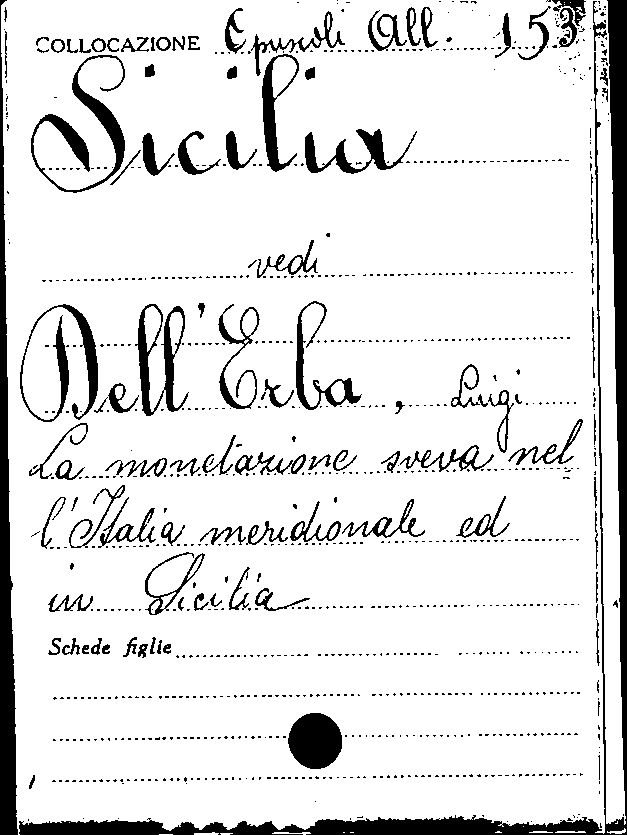 COLLOCAZIONE Opuscoli All. 153
Sicilia
vedi
Dell'Erba, Luigi
La monetazione sveva nel
l'Italia meridionale ed
in Sicilia
Schede figlie